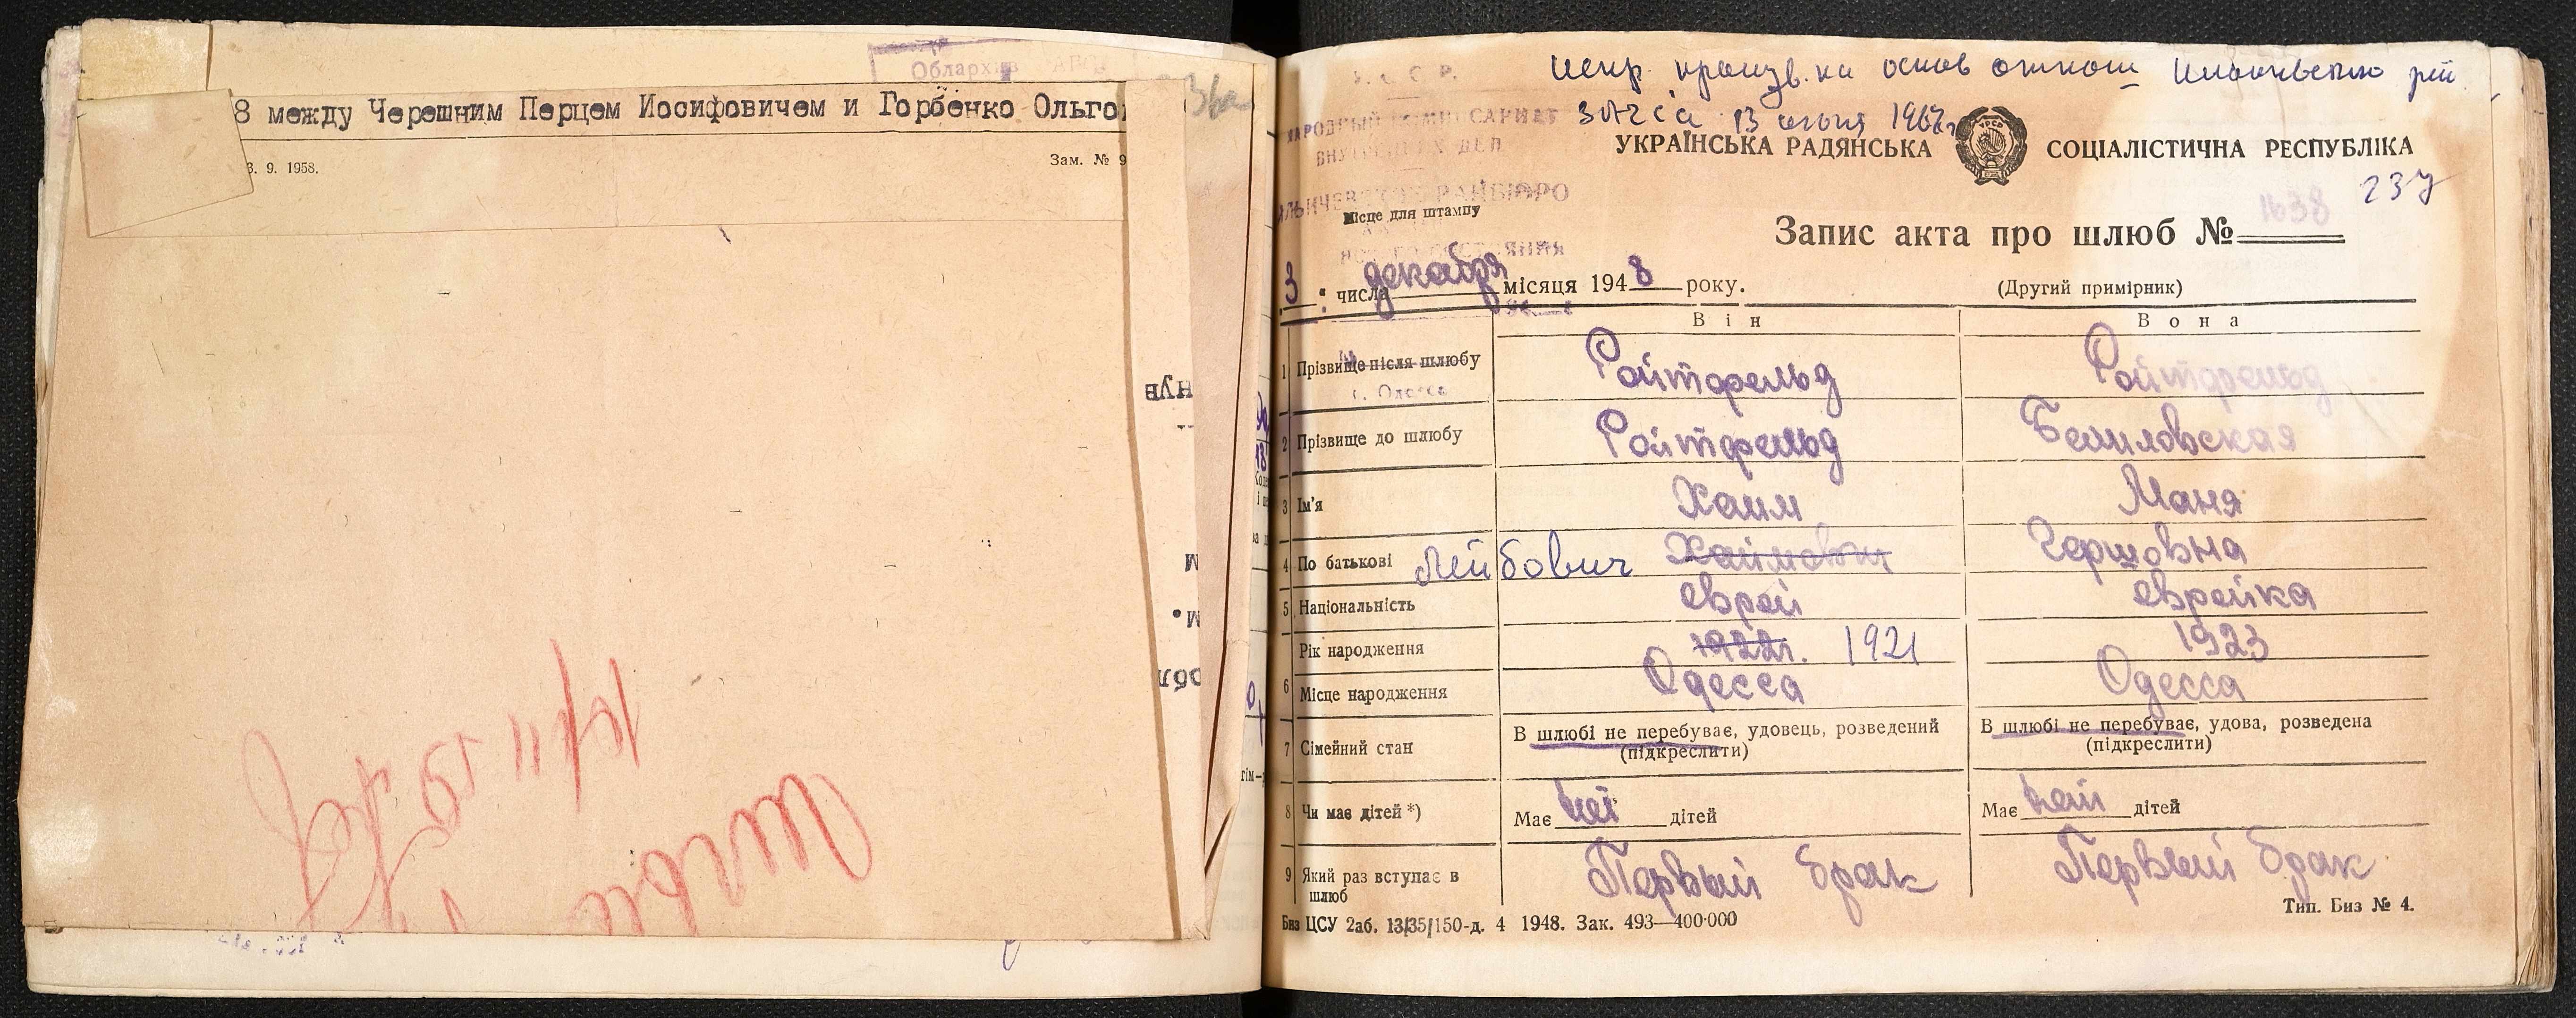 Обларх
8 между Черешним Перцем Иосифовичем и Горбенко Ольго
3. 9. 1958.
Зам. № 9
36а
испр. произв. на основ
ЗАГСа 13 июня 1967г
УКРАЇНСЬКА РАДЯНСЬКА СОЦІАЛІСТИЧНА РЕСПУБЛІКА
НАРОДНЫЙ КОМИССАРИАТ
ВНУТРЕННИХ ДЕЛ
ИЛЬИЧЕВСКОЕ РАЙБЮРО
Місце для штампу
237
Запис акта про шлюб № 1638
3 " числа декабря місяця 1948 року.
(Другий примірник)
Він Вона
1 Прізвище після шлюбу Ройтфельд Ройтфельд
г. Одесса
2 Прізвище до шлюбу Ройтфельд
3 Ім'я Хаим Маня
4 По батькові Лейбович Хаймович Гершовна
5 Національність еврей еврейка
Рік народження 1922г. 1921 1923
6 Місце народження Одесса Одесса
7 Сімейний стан В шлюбі не перебуває, удовець, розведений В шлюбі не перебуває, удова, розведена
(підкреслити) (підкреслити)
8 Чи має дітей *) Має дітей Має дітей
9 Який раз вступає в шлюб Первый брак Первый брак
Биз ЦСУ 2аб. 13/35/150-д. 4 1948. Зак. 493—400·000
Тип. Биз № 4.